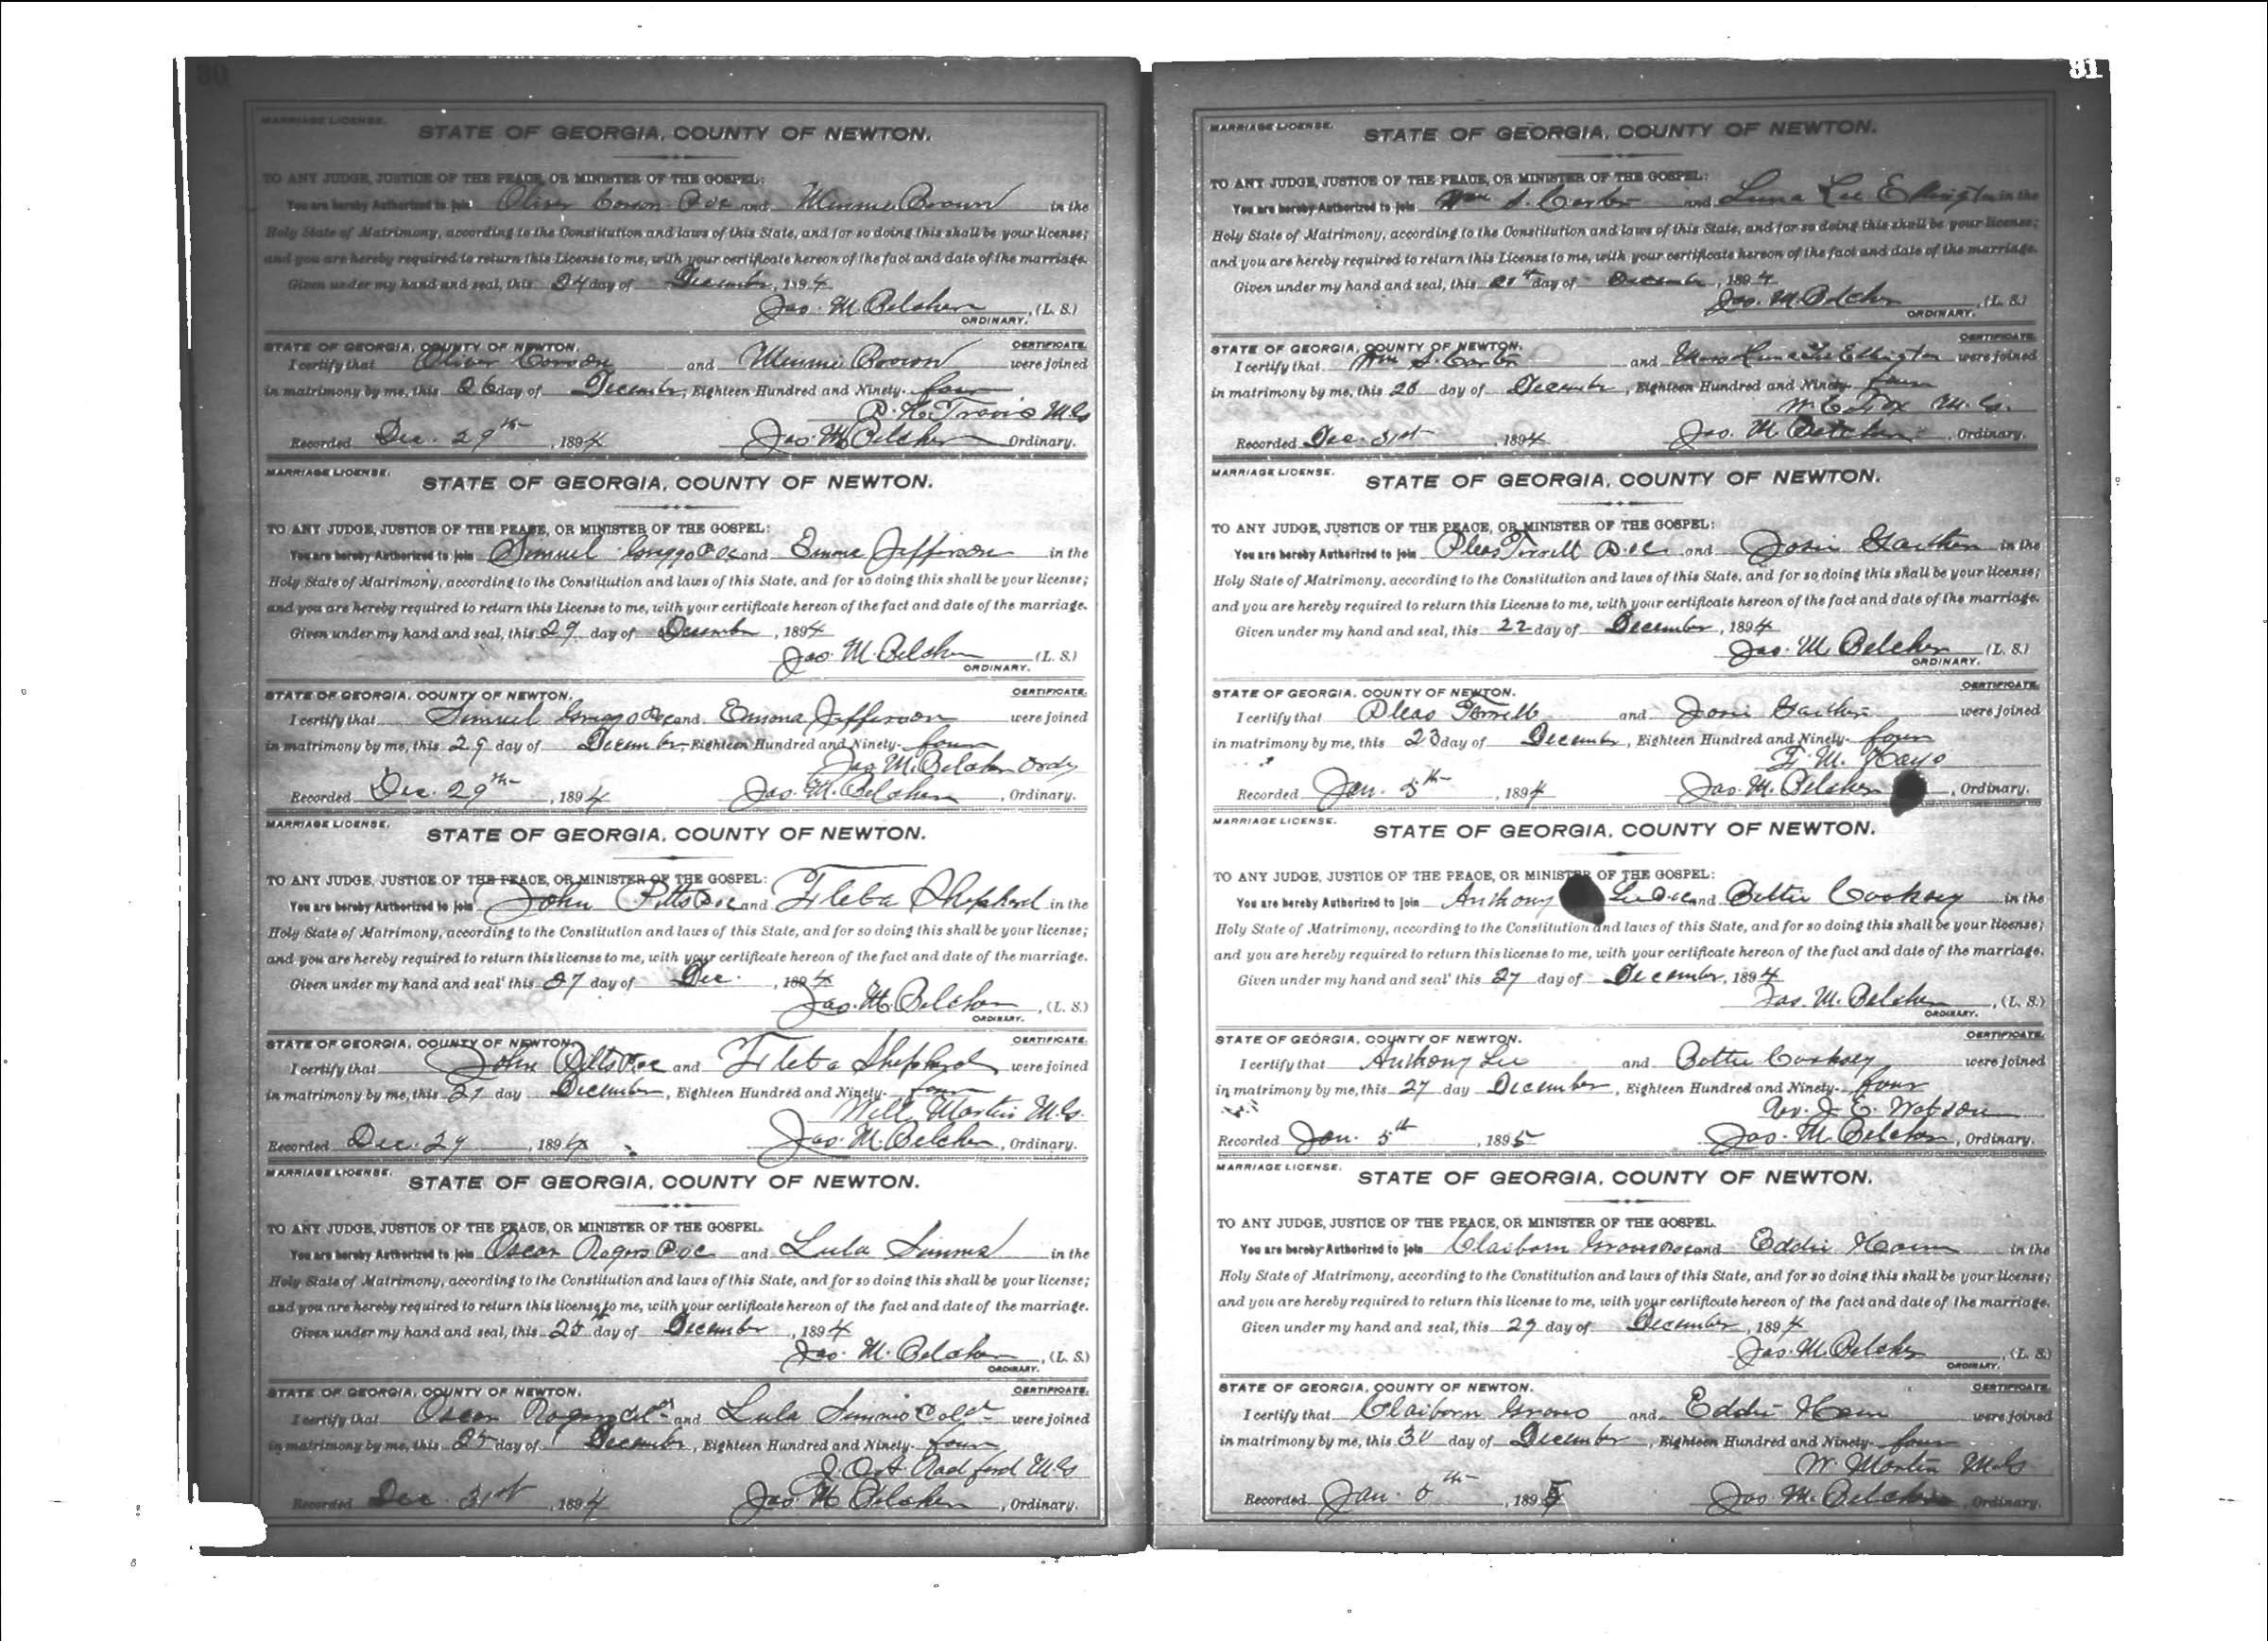 80
MARRIAGE LICENSE.
STATE OF GEORGIA, COUNTY OF NEWTON.
TO ANY JUDGE, JUSTICE OF THE PEACE, OR MINISTER OF THE GOSPEL:
You are hereby Authorized to join Oliver and Minnie Brown in the
Holy State of Matrimony, according to the Constitution and laws of this State, and for so doing this shall be your license;
and you are hereby required to return this License to me, with your certificate hereon of the fact and date of the marriage.
Given under my hand and seal, this 24 day of December, 1894
Jas. M. Belcher, (L. S.)
ORDINARY.
STATE OF GEORGIA, COUNTY OF NEWTON. CERTIFICATE.
I certify that Oliver and Minnie Brown were joined
in matrimony by me, this 26 day of December, Eighteen Hundred and Ninety-four
Travis M.G.
Recorded Dec. 29th, 1894 Jas. M. Belcher Ordinary.
MARRIAGE LICENSE.
STATE OF GEORGIA, COUNTY OF NEWTON.
TO ANY JUDGE, JUSTICE OF THE PEACE, OR MINISTER OF THE GOSPEL:
You are hereby Authorized to join Simuel Griggs and Emma Jefferson in the
Holy State of Matrimony, according to the Constitution and laws of this State, and for so doing this shall be your license;
and you are hereby required to return this License to me, with your certificate hereon of the fact and date of the marriage.
Given under my hand and seal, this 29 day of December, 1894
Jas. M. Belcher (L. S.)
ORDINARY.
STATE OF GEORGIA, COUNTY OF NEWTON. CERTIFICATE.
I certify that Simuel Griggs and Emma Jefferson were joined
in matrimony by me, this 29 day of December, Eighteen Hundred and Ninety-four
Jas. M. Belcher Ordy
Recorded Dec. 29th, 1894 Jas. M. Belcher, Ordinary.
MARRIAGE LICENSE.
STATE OF GEORGIA, COUNTY OF NEWTON.
TO ANY JUDGE, JUSTICE OF THE PEACE, OR MINISTER OF THE GOSPEL:
You are hereby Authorized to join John Pitts and Shepherd in the
Holy State of Matrimony, according to the Constitution and laws of this State, and for so doing this shall be your license;
and you are hereby required to return this license to me, with your certificate hereon of the fact and date of the marriage.
Given under my hand and seal this 27 day of Dec., 1894
Jas. M. Belcher, (L. S.)
ORDINARY.
STATE OF GEORGIA, COUNTY OF NEWTON. CERTIFICATE.
I certify that John Pitts and Shepherd were joined
in matrimony by me, this 27 day December, Eighteen Hundred and Ninety-four
Will Martin M.G.
Recorded Dec. 29, 1894 Jas. M. Belcher, Ordinary.
MARRIAGE LICENSE.
STATE OF GEORGIA, COUNTY OF NEWTON.
TO ANY JUDGE, JUSTICE OF THE PEACE, OR MINISTER OF THE GOSPEL.
You are hereby Authorized to join Oscar Rogers and Lula Simms in the
Holy State of Matrimony, according to the Constitution and laws of this State, and for so doing this shall be your license;
and you are hereby required to return this license to me, with your certificate hereon of the fact and date of the marriage.
Given under my hand and seal, this 25th day of December, 1894
Jas. M. Belcher, (L. S.)
ORDINARY.
STATE OF GEORGIA, COUNTY OF NEWTON. CERTIFICATE.
I certify that Oscar Rogers and Lula Simms Cold were joined
in matrimony by me, this 25 day of December, Eighteen Hundred and Ninety-four
J. O. A. Radford M.G.
Recorded Dec. 31st, 1894 Jas. M. Belcher, Ordinary.
81
MARRIAGE LICENSE.
STATE OF GEORGIA, COUNTY OF NEWTON.
TO ANY JUDGE, JUSTICE OF THE PEACE, OR MINISTER OF THE GOSPEL:
You are hereby Authorized to join Wm S. and Luna Lee Ellington in the
Holy State of Matrimony, according to the Constitution and laws of this State, and for so doing this shall be your license;
and you are hereby required to return this License to me, with your certificate hereon of the fact and date of the marriage.
Given under my hand and seal, this day of December, 1894
Jas. M. Belcher, (L. S.)
ORDINARY.
STATE OF GEORGIA, COUNTY OF NEWTON. CERTIFICATE.
I certify that Wm S. and Miss Luna Lee Ellington were joined
in matrimony by me, this day of December, Eighteen Hundred and Ninety-four
W. C. Fox M.G.
Recorded Dec. 31st, 1894 Jas. M. Belcher, Ordinary.
MARRIAGE LICENSE.
STATE OF GEORGIA, COUNTY OF NEWTON.
TO ANY JUDGE, JUSTICE OF THE PEACE, OR MINISTER OF THE GOSPEL:
You are hereby Authorized to join Pleas Terrell and Josie Gaither in the
Holy State of Matrimony, according to the Constitution and laws of this State, and for so doing this shall be your license;
and you are hereby required to return this License to me, with your certificate hereon of the fact and date of the marriage.
Given under my hand and seal, this 22 day of December, 1894
Jas. M. Belcher (L. S.)
ORDINARY.
STATE OF GEORGIA, COUNTY OF NEWTON. CERTIFICATE.
I certify that Pleas Terrell and Josie Gaither were joined
in matrimony by me, this 23 day of December, Eighteen Hundred and Ninety-four
F. M. Hays
Recorded Jan. 5th, 1894 Jas. M. Belcher, Ordinary.
MARRIAGE LICENSE.
STATE OF GEORGIA, COUNTY OF NEWTON.
TO ANY JUDGE, JUSTICE OF THE PEACE, OR MINISTER OF THE GOSPEL:
You are hereby Authorized to join Anthony Lee and Bettie Cooksey in the
Holy State of Matrimony, according to the Constitution and laws of this State, and for so doing this shall be your license;
and you are hereby required to return this license to me, with your certificate hereon of the fact and date of the marriage.
Given under my hand and seal this 27 day of December, 1894
Jas. M. Belcher, (L. S.)
ORDINARY.
STATE OF GEORGIA, COUNTY OF NEWTON. CERTIFICATE.
I certify that Anthony Lee and Bettie Cooksey were joined
in matrimony by me, this 27 day December, Eighteen Hundred and Ninety-four
Rev. J. E. Watson
Recorded Jan. 5th, 1895 Jas. M. Belcher, Ordinary.
MARRIAGE LICENSE.
STATE OF GEORGIA, COUNTY OF NEWTON.
TO ANY JUDGE, JUSTICE OF THE PEACE, OR MINISTER OF THE GOSPEL.
You are hereby Authorized to join Claiborn and Eddie in the
Holy State of Matrimony, according to the Constitution and laws of this State, and for so doing this shall be your license;
and you are hereby required to return this license to me, with your certificate hereon of the fact and date of the marriage.
Given under my hand and seal, this 29 day of December, 1894
Jas. M. Belcher, (L. S.)
ORDINARY.
STATE OF GEORGIA, COUNTY OF NEWTON. CERTIFICATE.
I certify that Claiborn and Eddie were joined
in matrimony by me, this 30 day of December, Eighteen Hundred and Ninety-four
W. Martin M.G.
Recorded Jan. 5th, 1895 Jas. M. Belcher, Ordinary.